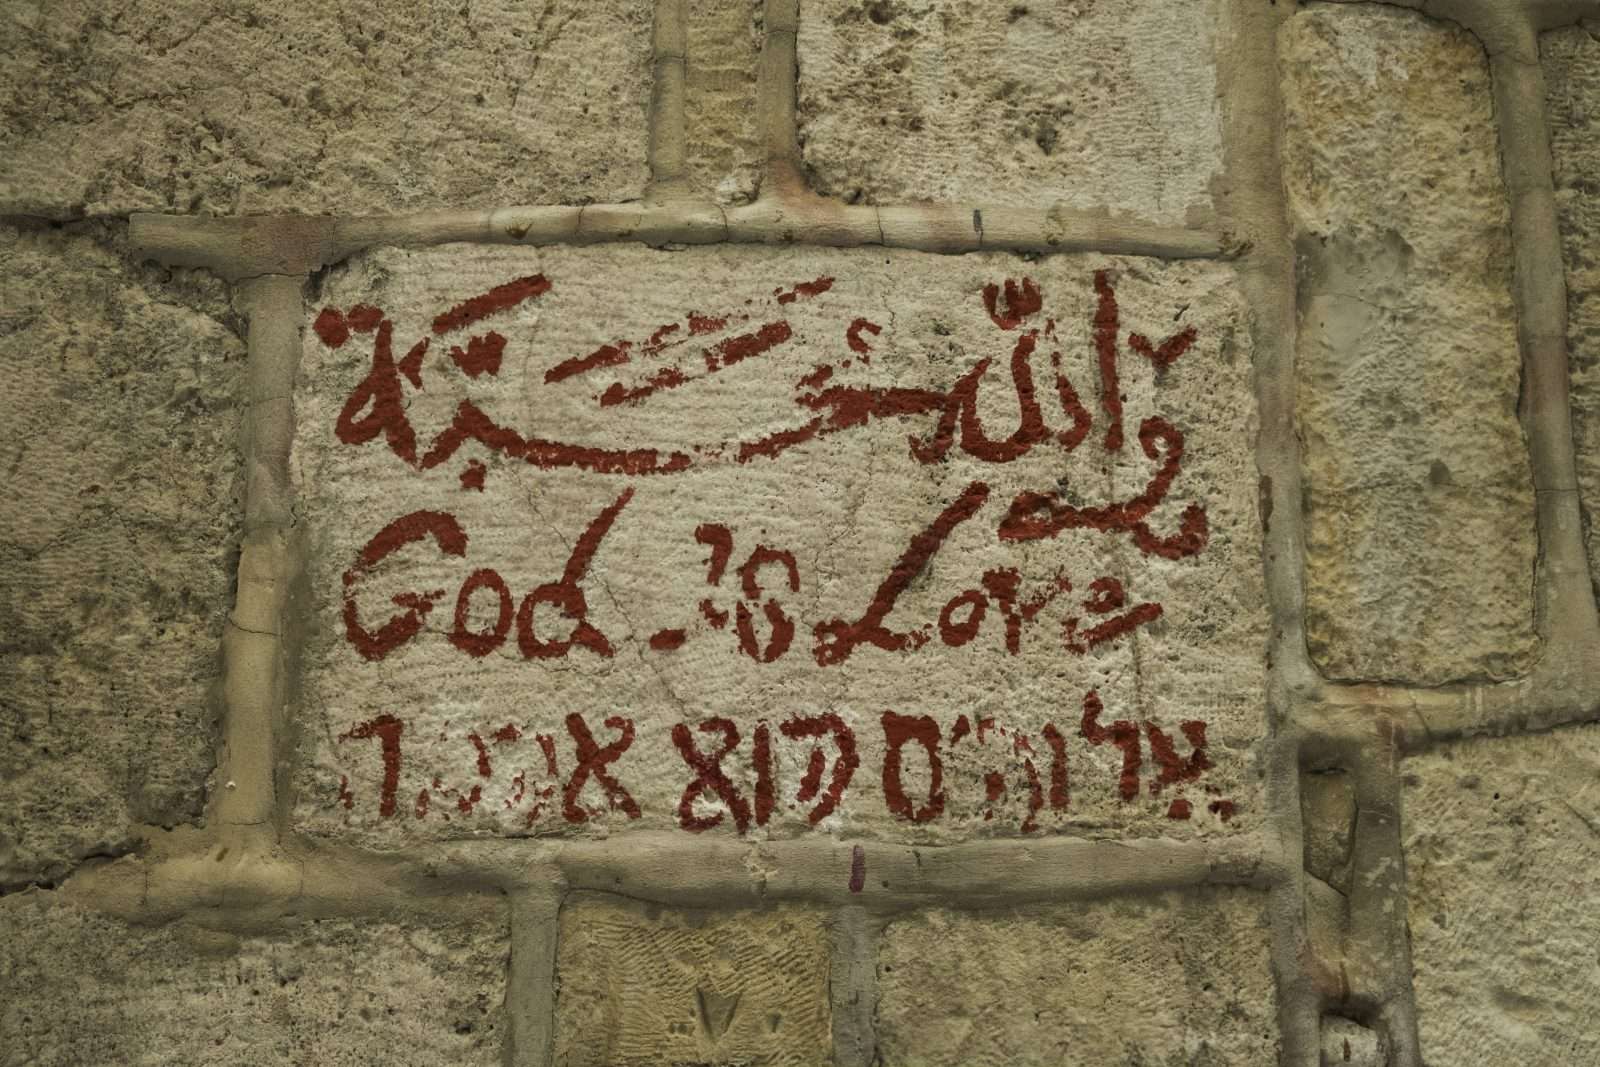 وَاللّٰه مَحَبَّة
God is Love
אלוהים הוא אהבה